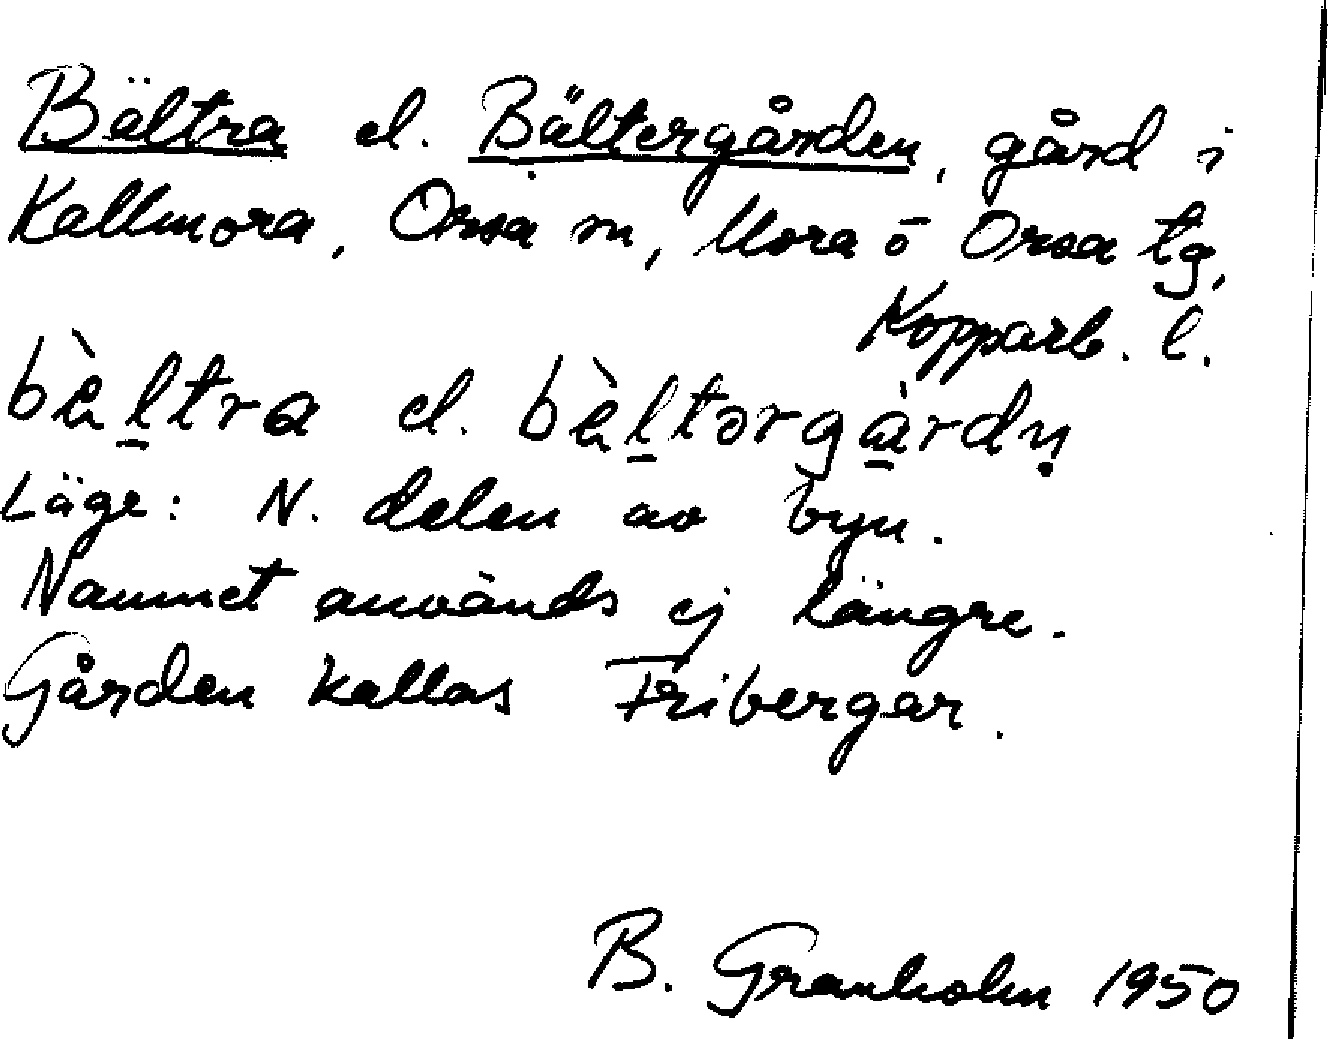 Bältra el. Bältergården, gård i
Kallmora, Orsa sn, Mora ö Orsa tg,
Kopparb. l.
bæ̀l̠tra el. bæ̀l̠tərgà̠rdn̥
Läge: N. delen av byn.
Namnet används ej längre.
Gården kallas Fribergar.
B. Granholm 1950